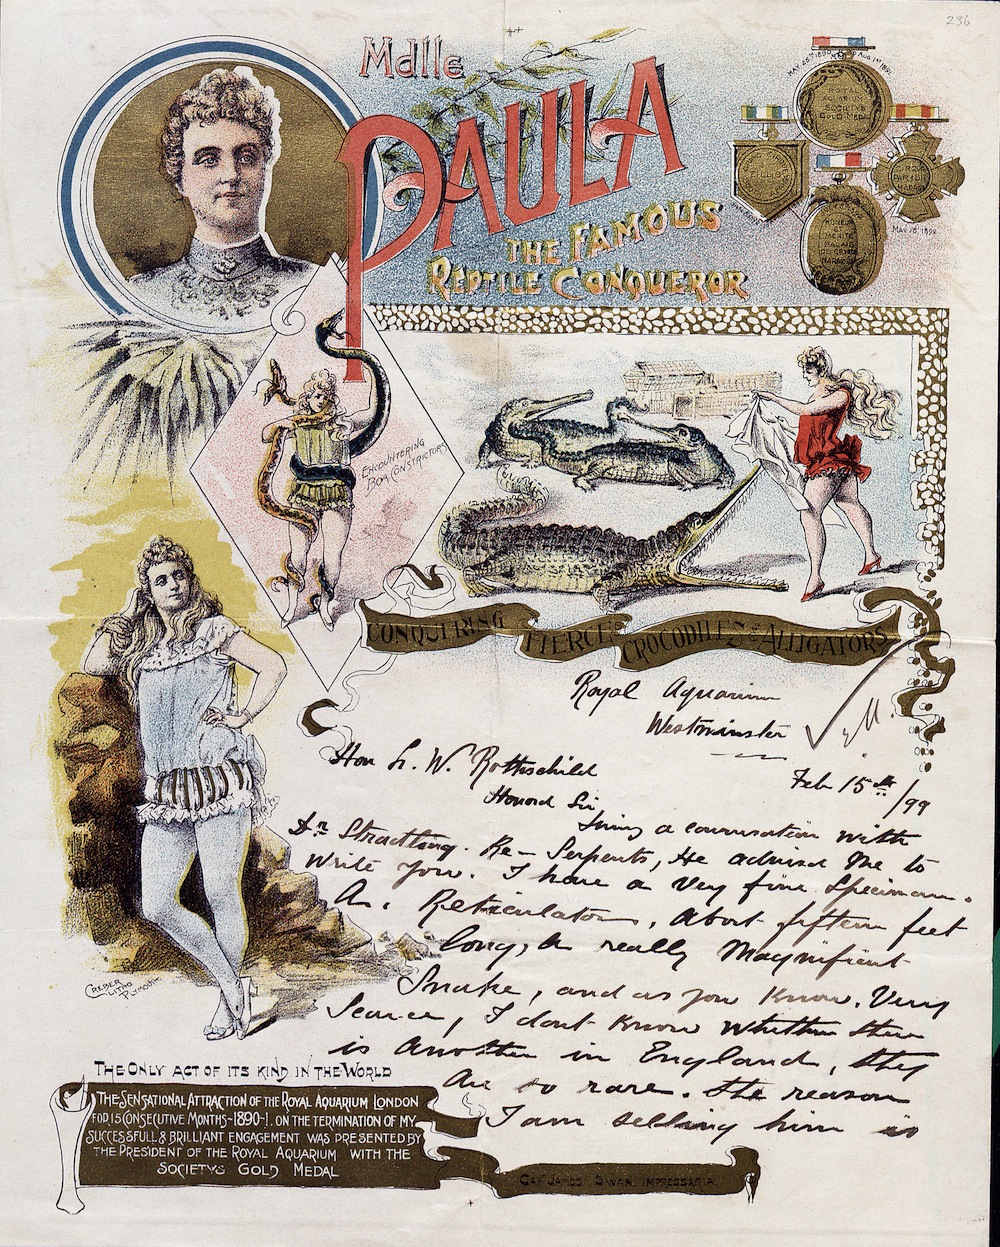 236
Mdlle
PAULA
THE FAMOUS
REPTILE CONQUEROR
MAY 26TH 1890
AUG 1ST 1891
ROYAL
AQUARIUM
SOCIETY'S
GOLD MEDAL
MAY 16, 1892
ENCOUNTERING
BOA CONSTRICTORS
CONQUERING FIERCE CROCODILES & ALLIGATORS
Royal Aquarium
Westminster
Hon L. W. Rothschild
Feb 15th/99
Honord Sir,
a conversation with
Dr Stradling. Re- Serpents, He advised Me to
Write You. I have a Very fine Specimen.
A. Reticulatus, about fifteen feet
long, a really Magnificent
Snake, and as you Know. Very
Scarce, I dont Know Whether there
is another in England, they
are so rare. the reason
I am selling him is
CREBER
LITHO
PLYMOUTH
THE ONLY ACT OF ITS KIND IN THE WORLD
THE SENSATIONAL ATTRACTION OF THE ROYAL AQUARIUM LONDON
FOR 15 CONSECUTIVE MONTHS-1890-1. ON THE TERMINATION OF MY
SUCCESSFULL & BRILLIANT ENGAGEMENT WAS PRESENTED BY
THE PRESIDENT OF THE ROYAL AQUARIUM WITH THE
SOCIETYS GOLD MEDAL
CAPT JAMES SWAN IMPRESSARIA.